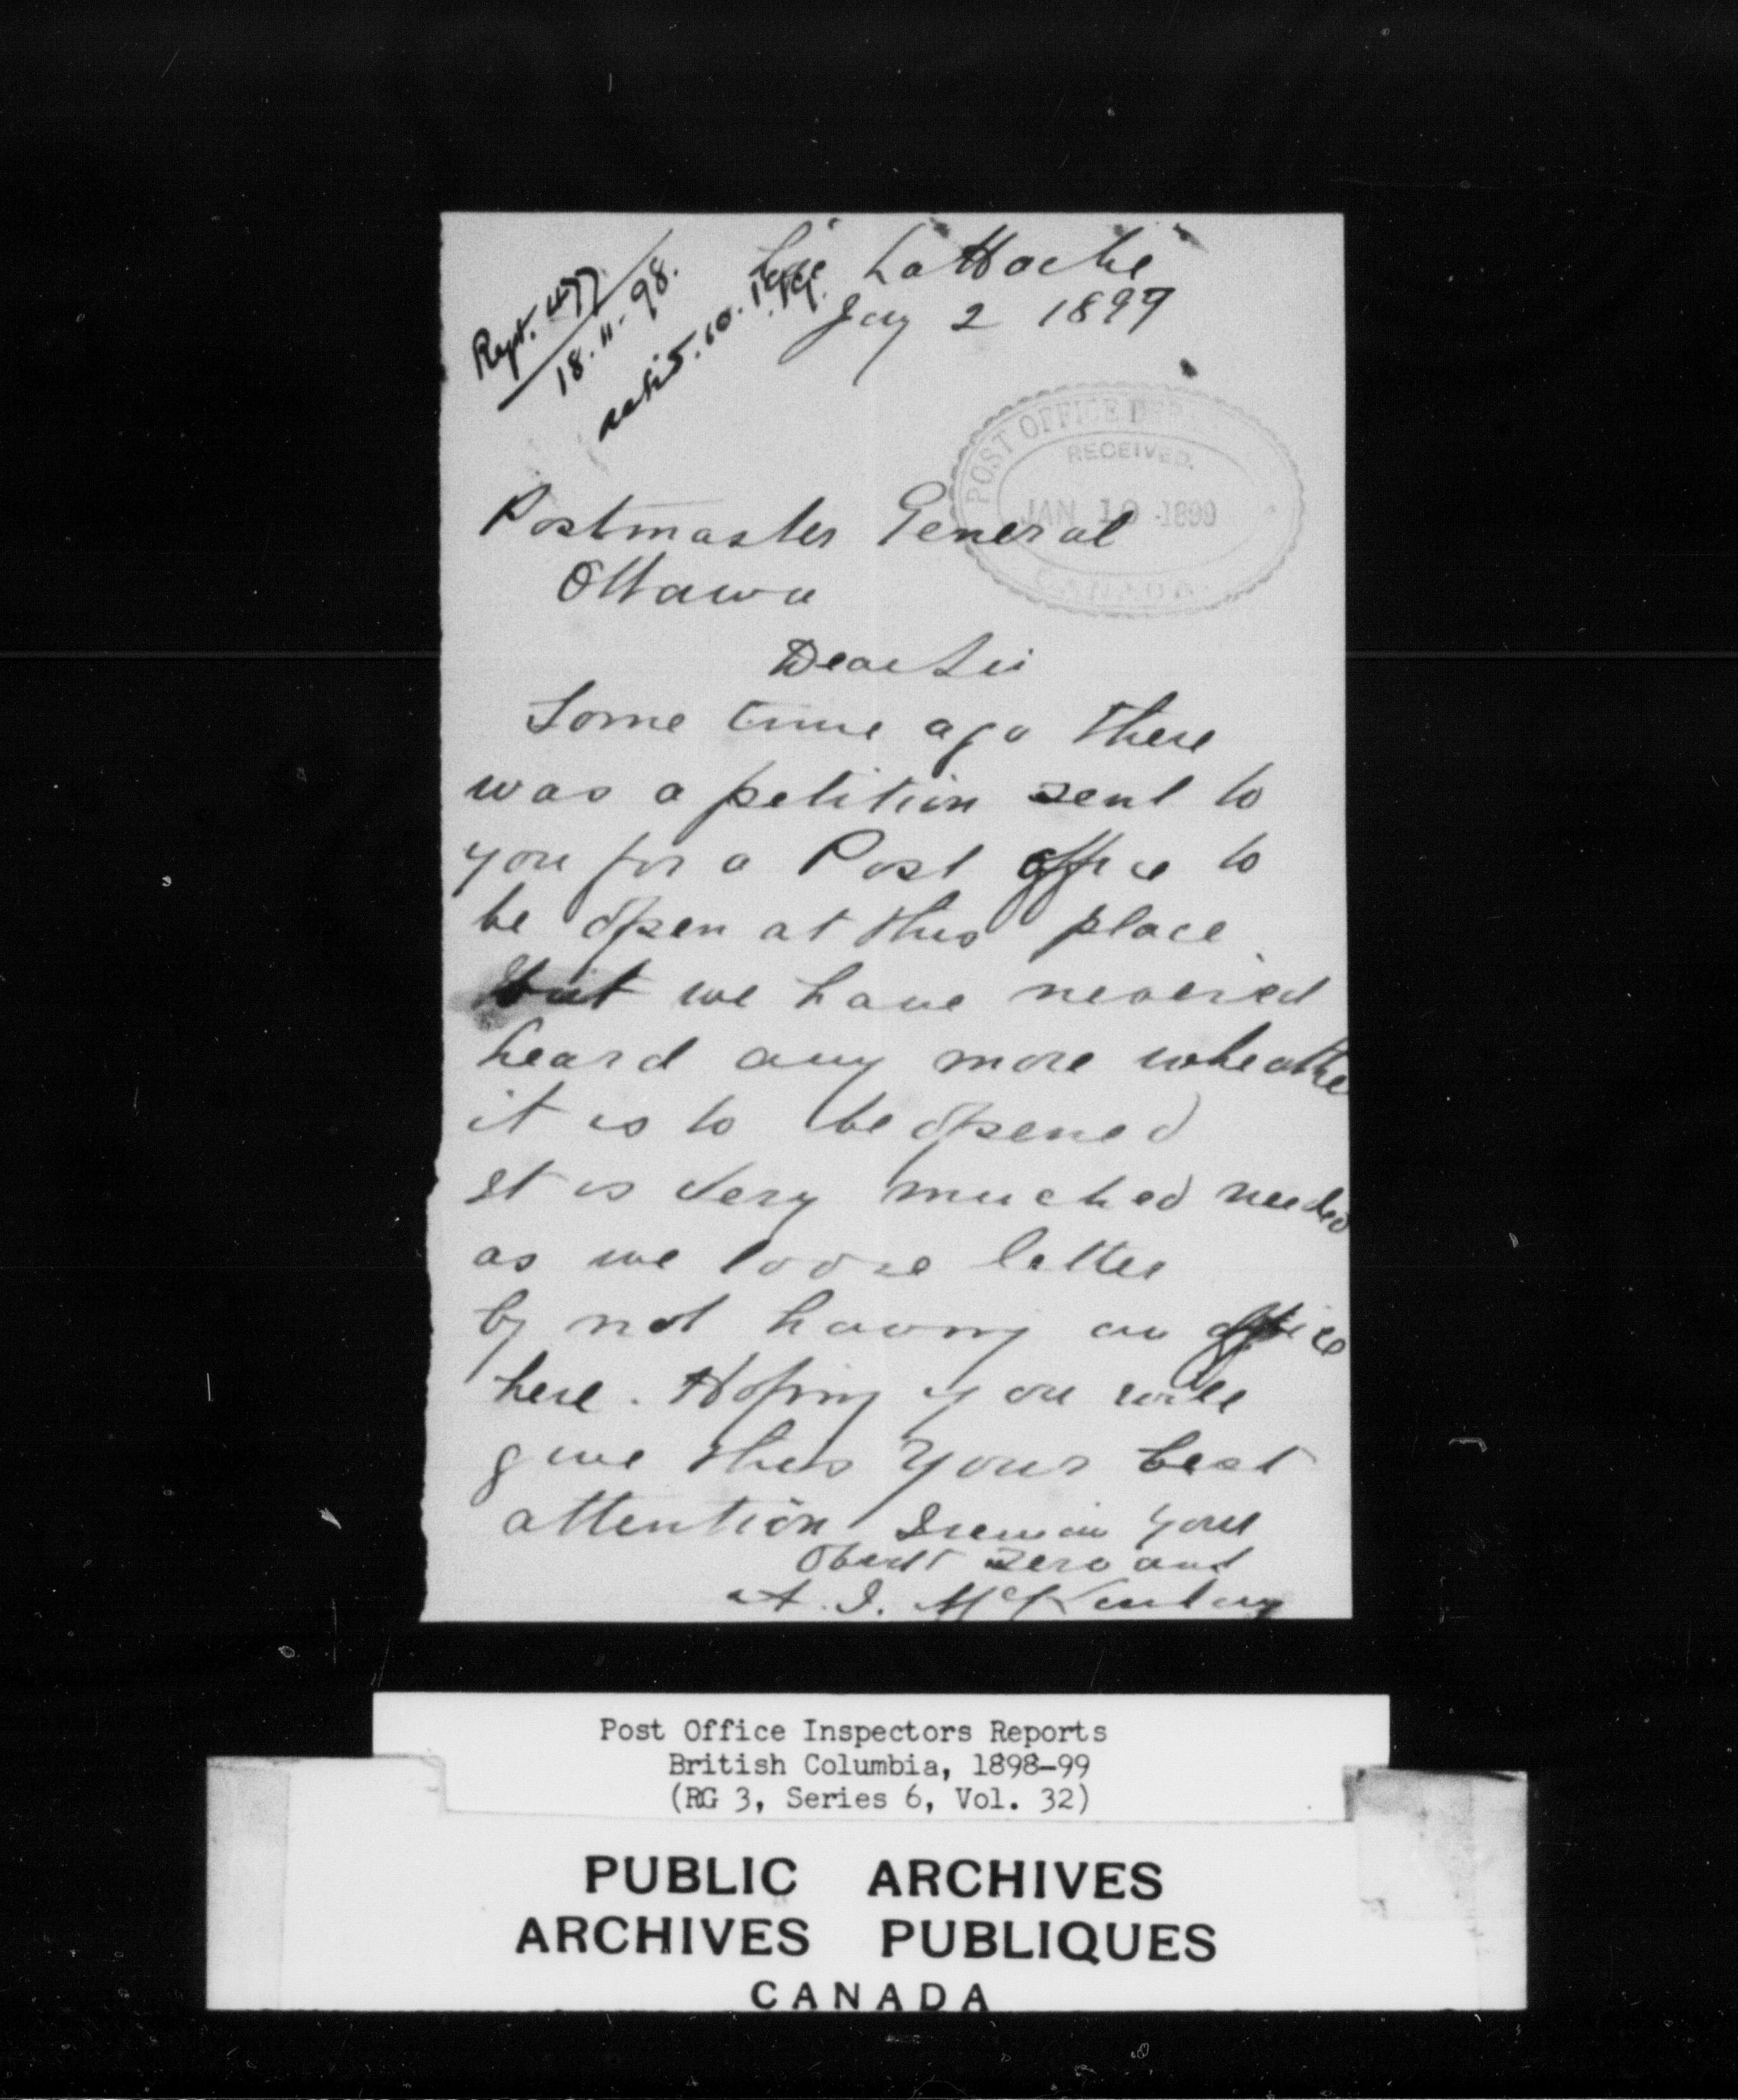 Rept. 477
18.11.98.
Lac LaHache
Jay 2 1899
POST OFFICE DEP
RECEIVED.
JAN 10 1899
CANADA
Postmaster General
Ottawa
Dear Sir
Some time ago there
was a petition sent to
you for a Post office to
be open at this place
But we have nevered
heard any more wheathe
it is to be opened
It is very muched needed
as we loose letter
by not having an office
here. Hoping you will
give this your best
attention I remain your
Obedt servant
A. I. McKinlay
Post Office Inspectors Reports
British Columbia, 1898-99
(RG 3, Series 6, Vol. 32)
PUBLIC ARCHIVES
ARCHIVES PUBLIQUES
CANADA